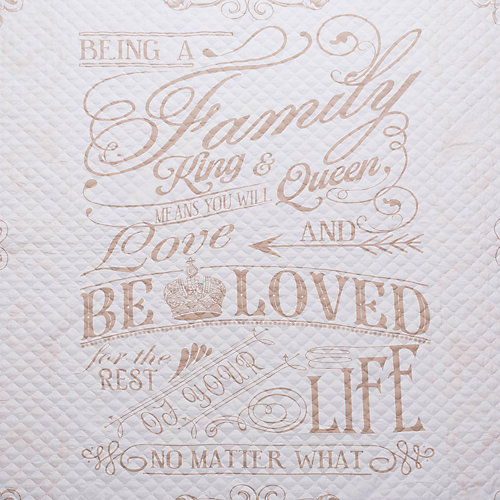 BEING A
Family
King & Queen,
MEANS YOU WILL
Love AND
BE LOVED
for the
REST OF YOUR
LIFE
NO MATTER WHAT